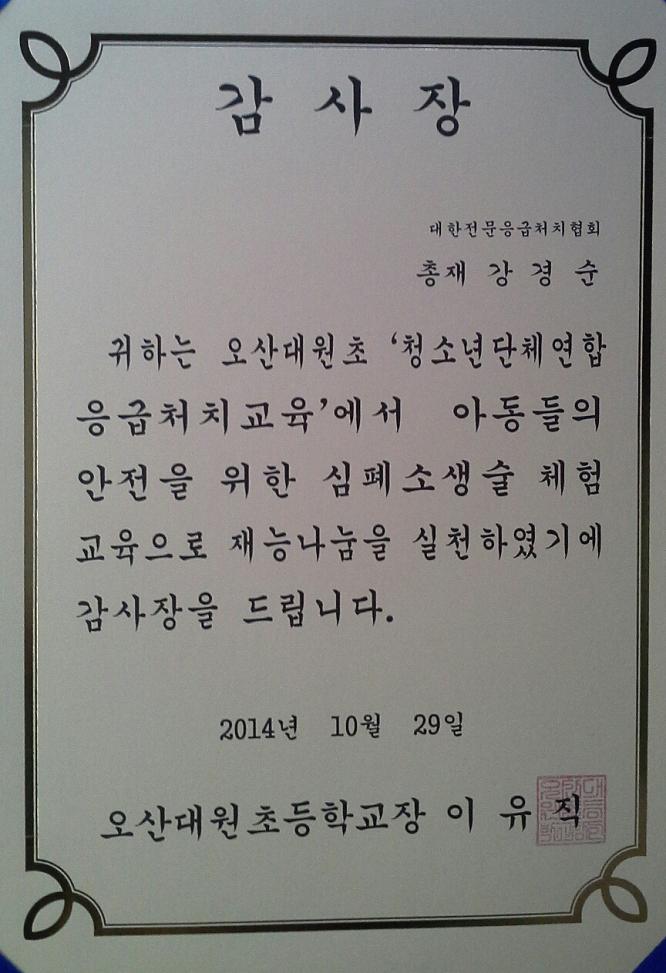 감 사 장
대한전문응급처치협회
총재 강 경 순
귀하는 오산대원초 '청소년단체연합
응급처치교육'에서 아동들의
안전을 위한 심폐소생술 체험
교육으로 재능나눔을 실천하였기에
감사장을 드립니다.
2014년 10월 29일
오산대원초등학교장 이 유 직